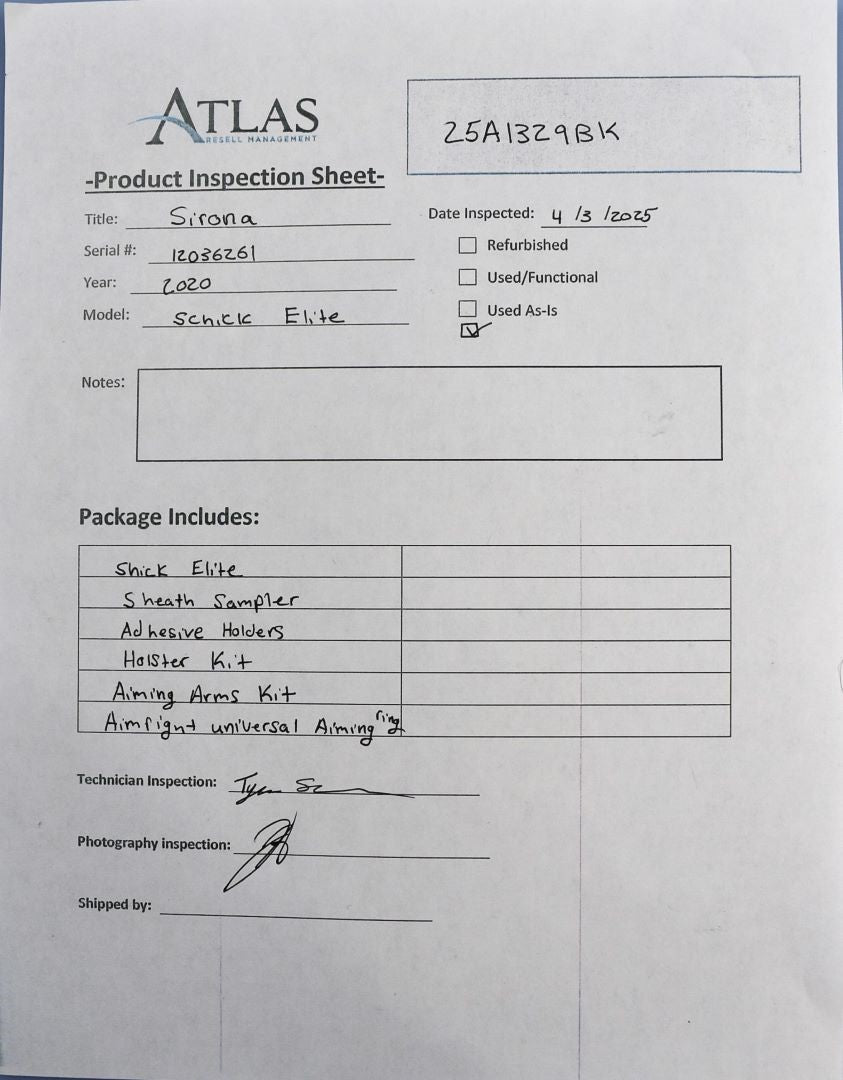 ATLAS
RESELL MANAGEMENT
25A1329BK
-Product Inspection Sheet-
Title: Sirona
Date Inspected: 4/3/2025
Serial #: 12036261
Refurbished
Year: 2020
Used/Functional
Model: Schick Elite
Used As-Is
Notes:
Package Includes:
Shick Elite
Sheath Sampler
Adhesive Holders
Holster Kit
Aiming Arms Kit
universal Aiming ring
Technician Inspection:
Photography inspection:
Shipped by: